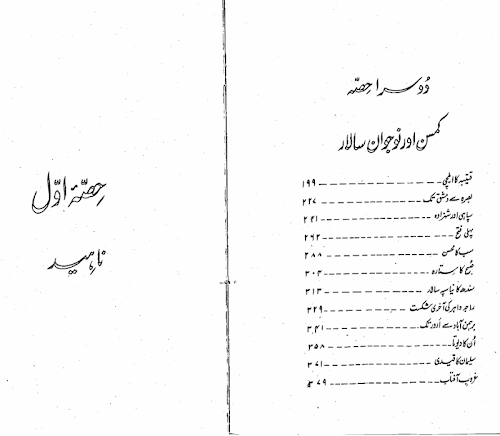 دُوسرا حِصّہ
کمسن اور نوجوان سالار
قتیبہ کا ایلچی ۱۹۹
بصرہ سے دمشق تک ۲۲۷
سپاہی اور شہزادہ ۲۴۱
پہلی فتح ۲۶۲
سب کا محسن ۲۸۸
صُبح کا ستارہ ۳۰۴
سندھ کا نیا سپہ سالار ۳۱۳
راجہ داہر کی آخری شکست ۳۲۹
برہمن آباد سے اَرور تک ۳۴۱
اُن کا دیوتا ۳۵۸
سلیمان کا قیدی ۳۷۱
غروبِ آفتاب ۳۷۹
حِصّہ اوّل
ناہید